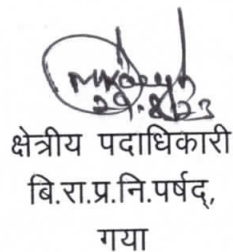 29.8.23
क्षेत्रीय पदाधिकारी
बि.रा.प्र.नि.पर्षद्,
गया